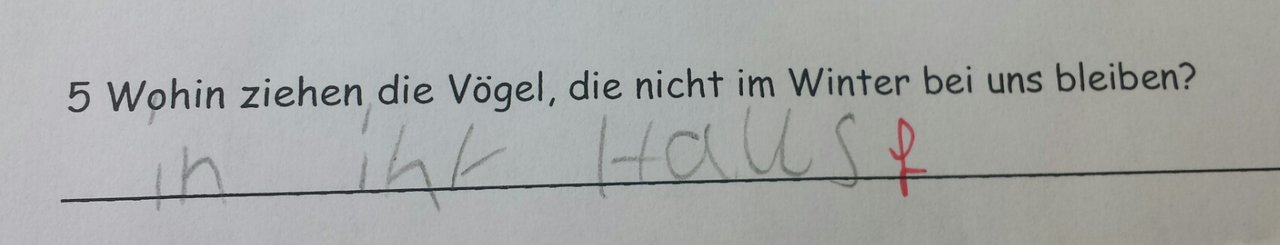 5 Wohin ziehen die Vögel, die nicht im Winter bei uns bleiben?
in ihr Haus f